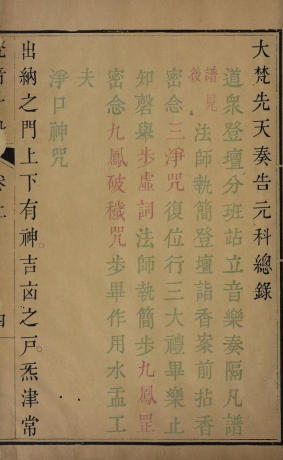 大梵先天奏告元科總錄
道衆登壇分班站立音樂奏隔凡譜
譜見後
法師執簡登壇詣香案前拈香
密念三淨咒復位行三大禮畢樂止
知磬與步虛詞法師執簡步九鳳罡
密念九鳳破穢咒步畢作用水盂工
夫
淨口神咒
出納之門上下有神吉凶之戸炁津常